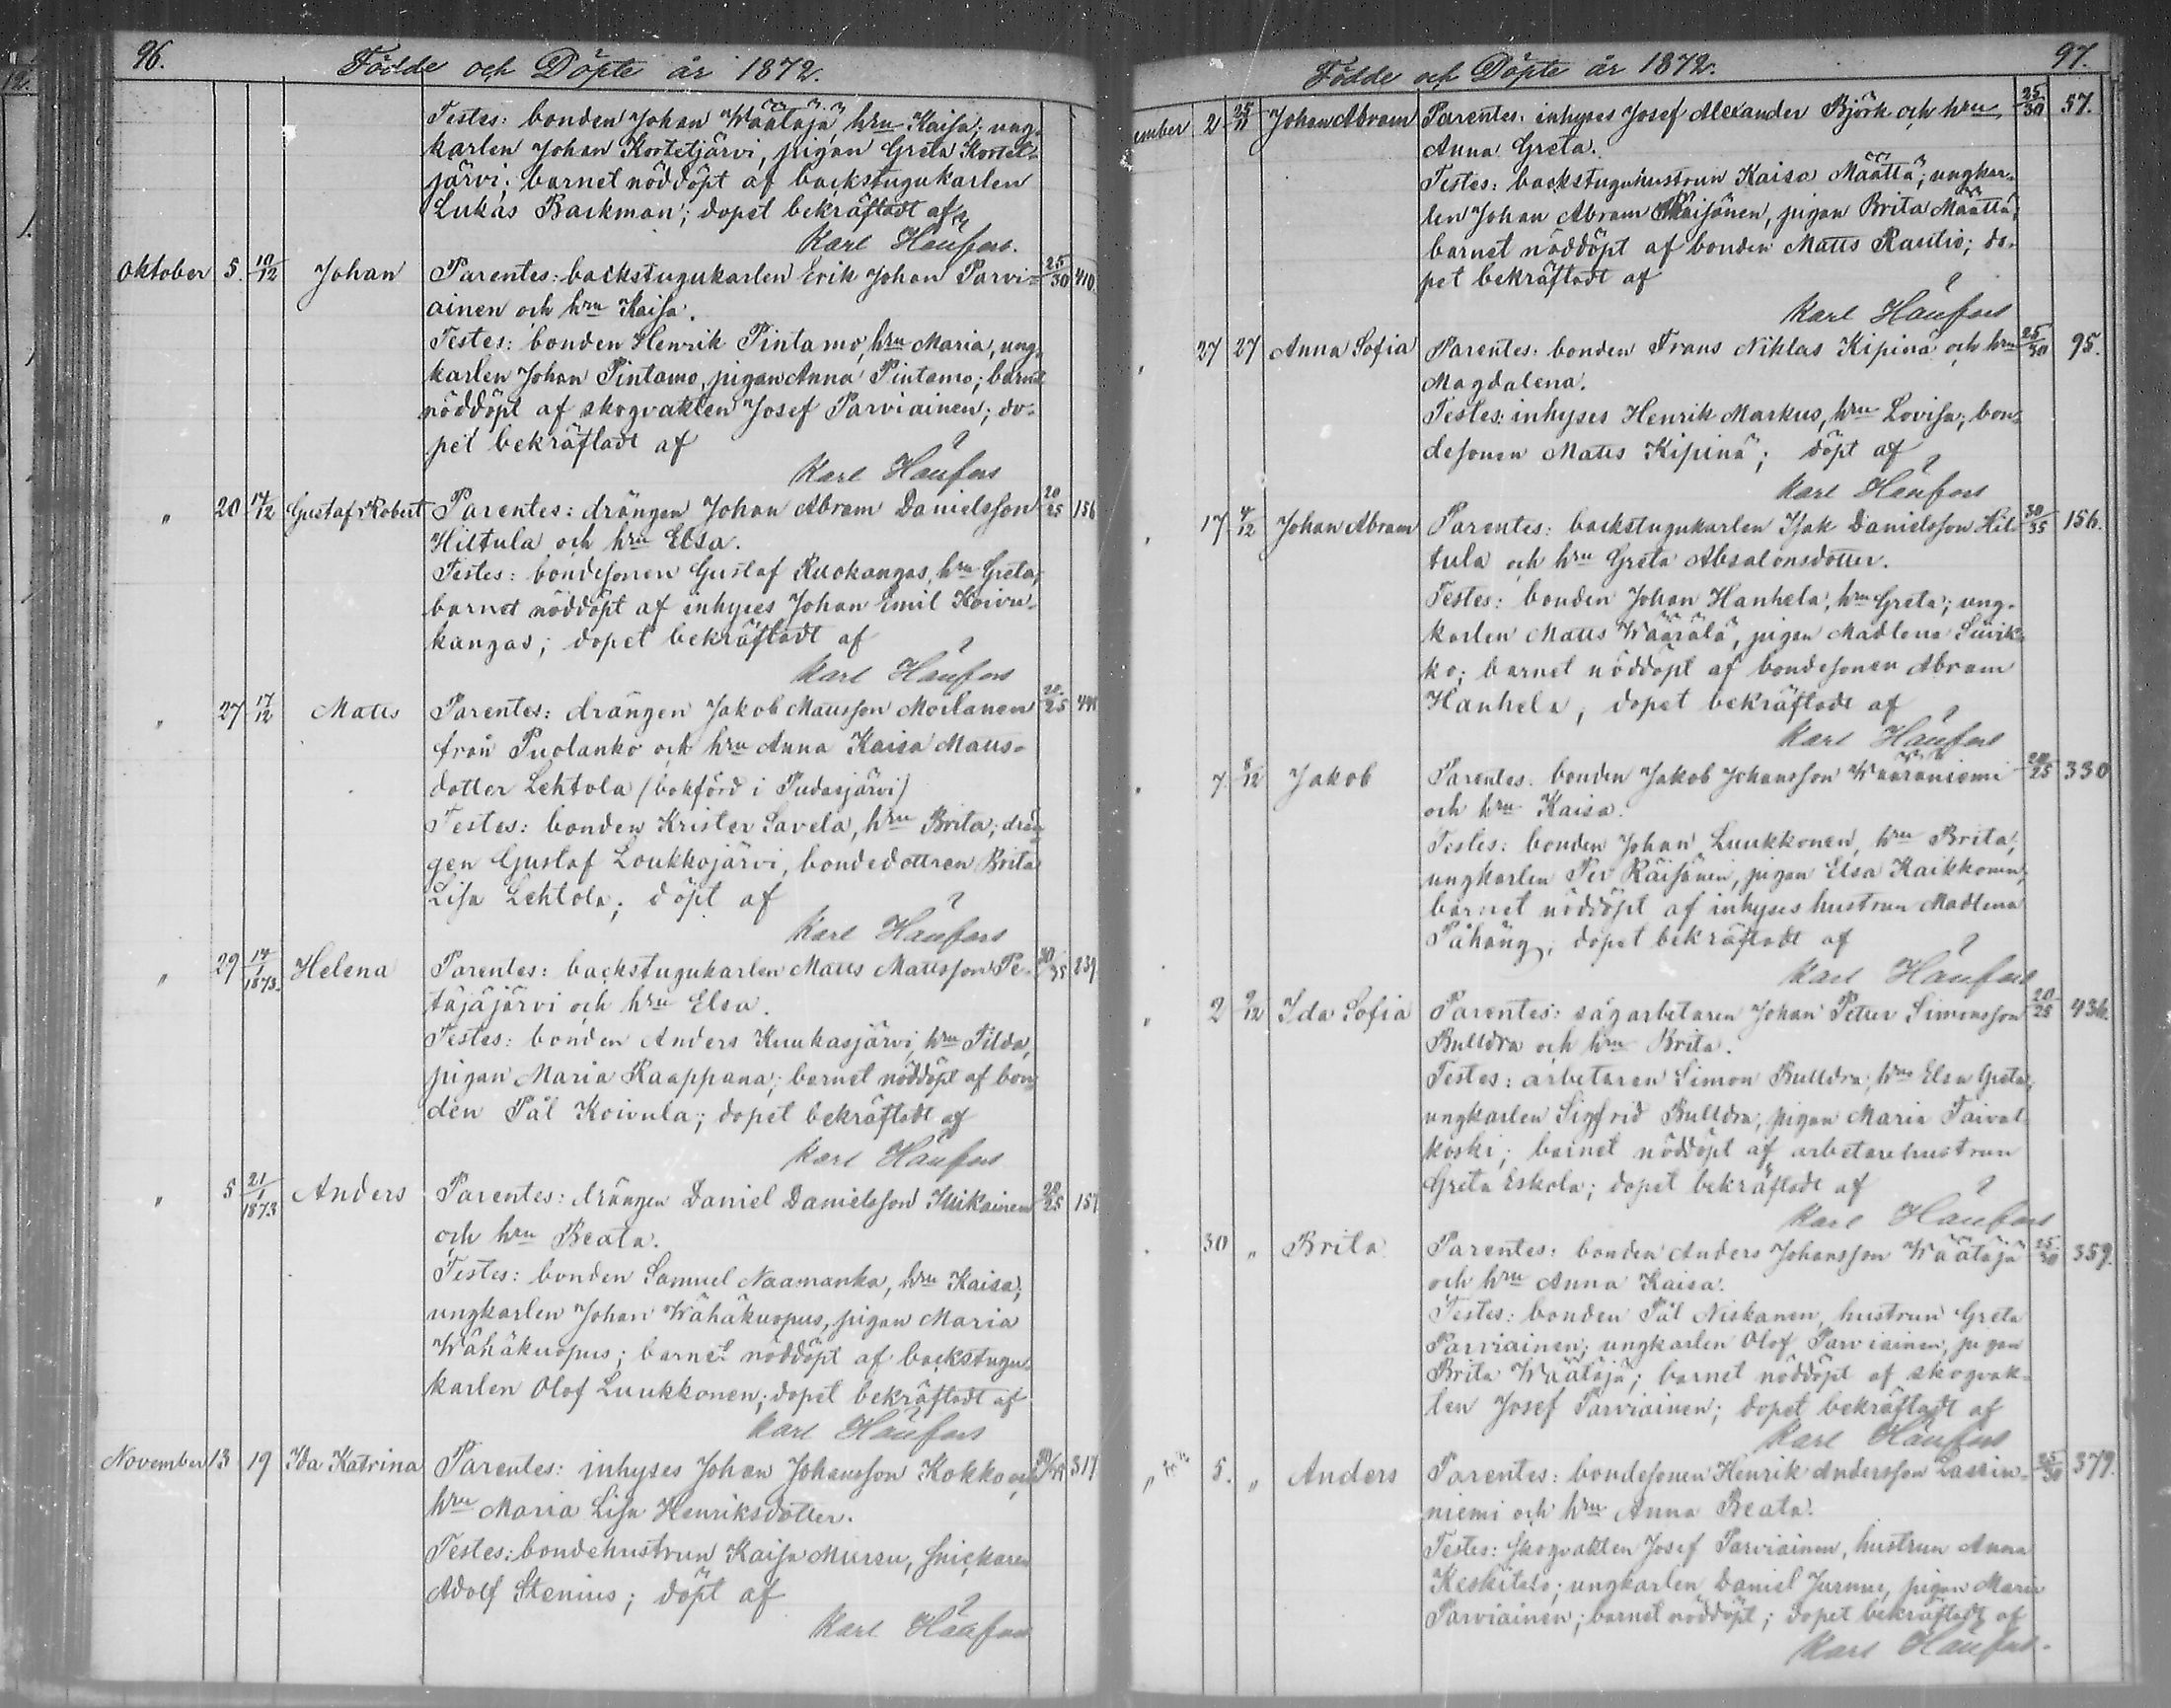 96.
Födde och Döpte år 1872.
Testes: bonden Johan Wäätäjä, hru Kaisa; ung-
karlen Johan Kortetjärvi, pigan Greta Kortet-
järvi; barnet nöddöpt af backstugukarlen
Lukas Backman; dopet bekräftadt af
Karl
Oktober 5. 10/12 Johan Parentes: backstugukarlen Erik Johan Parvi- 25/30 410.
ainen och hru Kaisa.
Testes: bonden Henrik Pintamo, hru Maria, ung-
karlen Johan Pintamo, pigan Anna Pintamo; barnet
nöddöpt af skogvakten Josef Parviainen; do-
pet bekräftadt af
Karl
" 20 17/12 Gustaf Robert Parentes: drängen Johan Abram Danielsson 20/25 156
Hiltula och hru Elsa.
Testes: bondesonen Gustaf Ruokangas, hru Greta;
barnet nöddöpt af inhyses Johan Emil Koivu-
kangas; dopet bekräftadt af
Karl
" 27 17/12 Matts Parentes: drängen Jakob Mattsson Moilanen 20/25
från Puolanko och hru Anna Kaisa Matts-
dotter Lehtola (bokförd i Pudasjärvi)
Testes: bonden Krister Savela, hru Brita; drän-
gen Gustaf Loukkojärvi, bondedottren Brita
Lisa Lehtola; döpt af
Karl
" 29 Helena Parentes: backstugukarlen Matts Mattsson Pe- 30/35 239
1873.
täjäjärvi och hru Elsa.
Testes: bonden Anders Kuukasjärvi, hru Tilda,
pigan Maria Kaappana; barnet nöddöpt af bon-
den Pål Koivula; dopet bekräftadt af
Karl
" 5 21/1 1873 Anders Parentes: drängen Daniel Danielsson 20/25 157
och hru Beata.
Testes: bonden Samuel Naamanka, hru Kaisa;
ungkarlen Johan Wähäkuopus, pigan Maria
Wähäkuopus; barnet nöddöpt af backstugu-
karlen Olof Luukkonen; dopet bekräftadt af
Karl
November 13 19 Ida Katrina Parentes: inhyses Johan Johansson Kokko och 317
hru Maria Lisa Henriksdotter.
Testes: bondehustrun Kaisa Mursu, snickaren
Adolf Stenius; döpt af
Karl
97.
Födde och Döpte år 1872.
ember 2 25/11 Johan Abram Parentes: inhyses Josef Alexander Björk och hru 25/30 57.
Anna Greta.
Testes: backstuguhustrun Kaisa Määttä; ungkar-
len Johan Abram Räisänen, pigan Brita Määttä;
barnet nöddöpt af bonden Matts Rautio; do-
pet bekräftadt af
Karl
27 27 Anna Sofia Parentes: bonden Frans Niklas Kipinä och hru 25/30 95.
Magdalena.
Testes: inhyses Henrik Markus, hru Lovisa; bon-
desonen Matts Kipinä; döpt af
Karl
17 Johan Abram Parentes: backstugukarlen Isak Danielsson Hil- 30/35 156.
tula och hru Greta Absalonsdotter.
Testes: bonden Johan Hanhela, hru Greta; ung-
karlen Matts Wäärälä, pigan Madlena Siivik-
ko; barnet nöddöpt af bondesonen Abram
Hanhela; dopet bekräftadt af
Karl
7. 8/12 Jakob Parentes: bonden Jakob Johansson Wääräniemi 20/25 330
och hru Kaisa.
Testes: bonden Johan Luukkonen, hru Brita;
ungkarlen Per Räisänen, pigan Elsa Kaikkonen;
barnet nöddöpt af inhyses hustrun Madlena
Påhäng; dopet bekräftadt af
Karl
2 9/12 Ida Sofia Parentes: sågarbetaren Johan Petter Simonsson 20/25 436.
Bulldra och hru Brita.
Testes: arbetaren Simon Bulldra, hru Elsa Greta;
ungkarlen Sigfrid Bulldra, pigan Maria Taival-
koski; barnet nöddöpt af arbetarehustrun
Greta Eskola; dopet bekräftadt af
Karl
30 " Brita Parentes: bonden Anders Johansson Wäätäjä 25/30 359.
och hru Anna Kaisa.
Testes: bonden Pål Niskanen, hustrun Greta
Parviainen; ungkarlen Olof Parviainen, pigan
Brita Wäätäjä; barnet nöddöpt af skogvak-
ten Josef Parviainen; dopet bekräftadt af
Karl
" 5. " Anders Parentes: bondesonen Henrik Andersson Lassin- 25/30 379.
niemi och hru Anna Beata.
Testes: skogvakten Josef Parviainen, hustrun Anna
Keskitalo; ungkarlen Daniel Jurmu, pigan Maria
Parviainen; barnet nöddöpt; dopet bekräftadt af
Karl